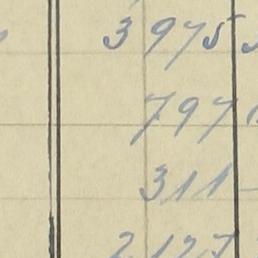 3975
797
311-
2127